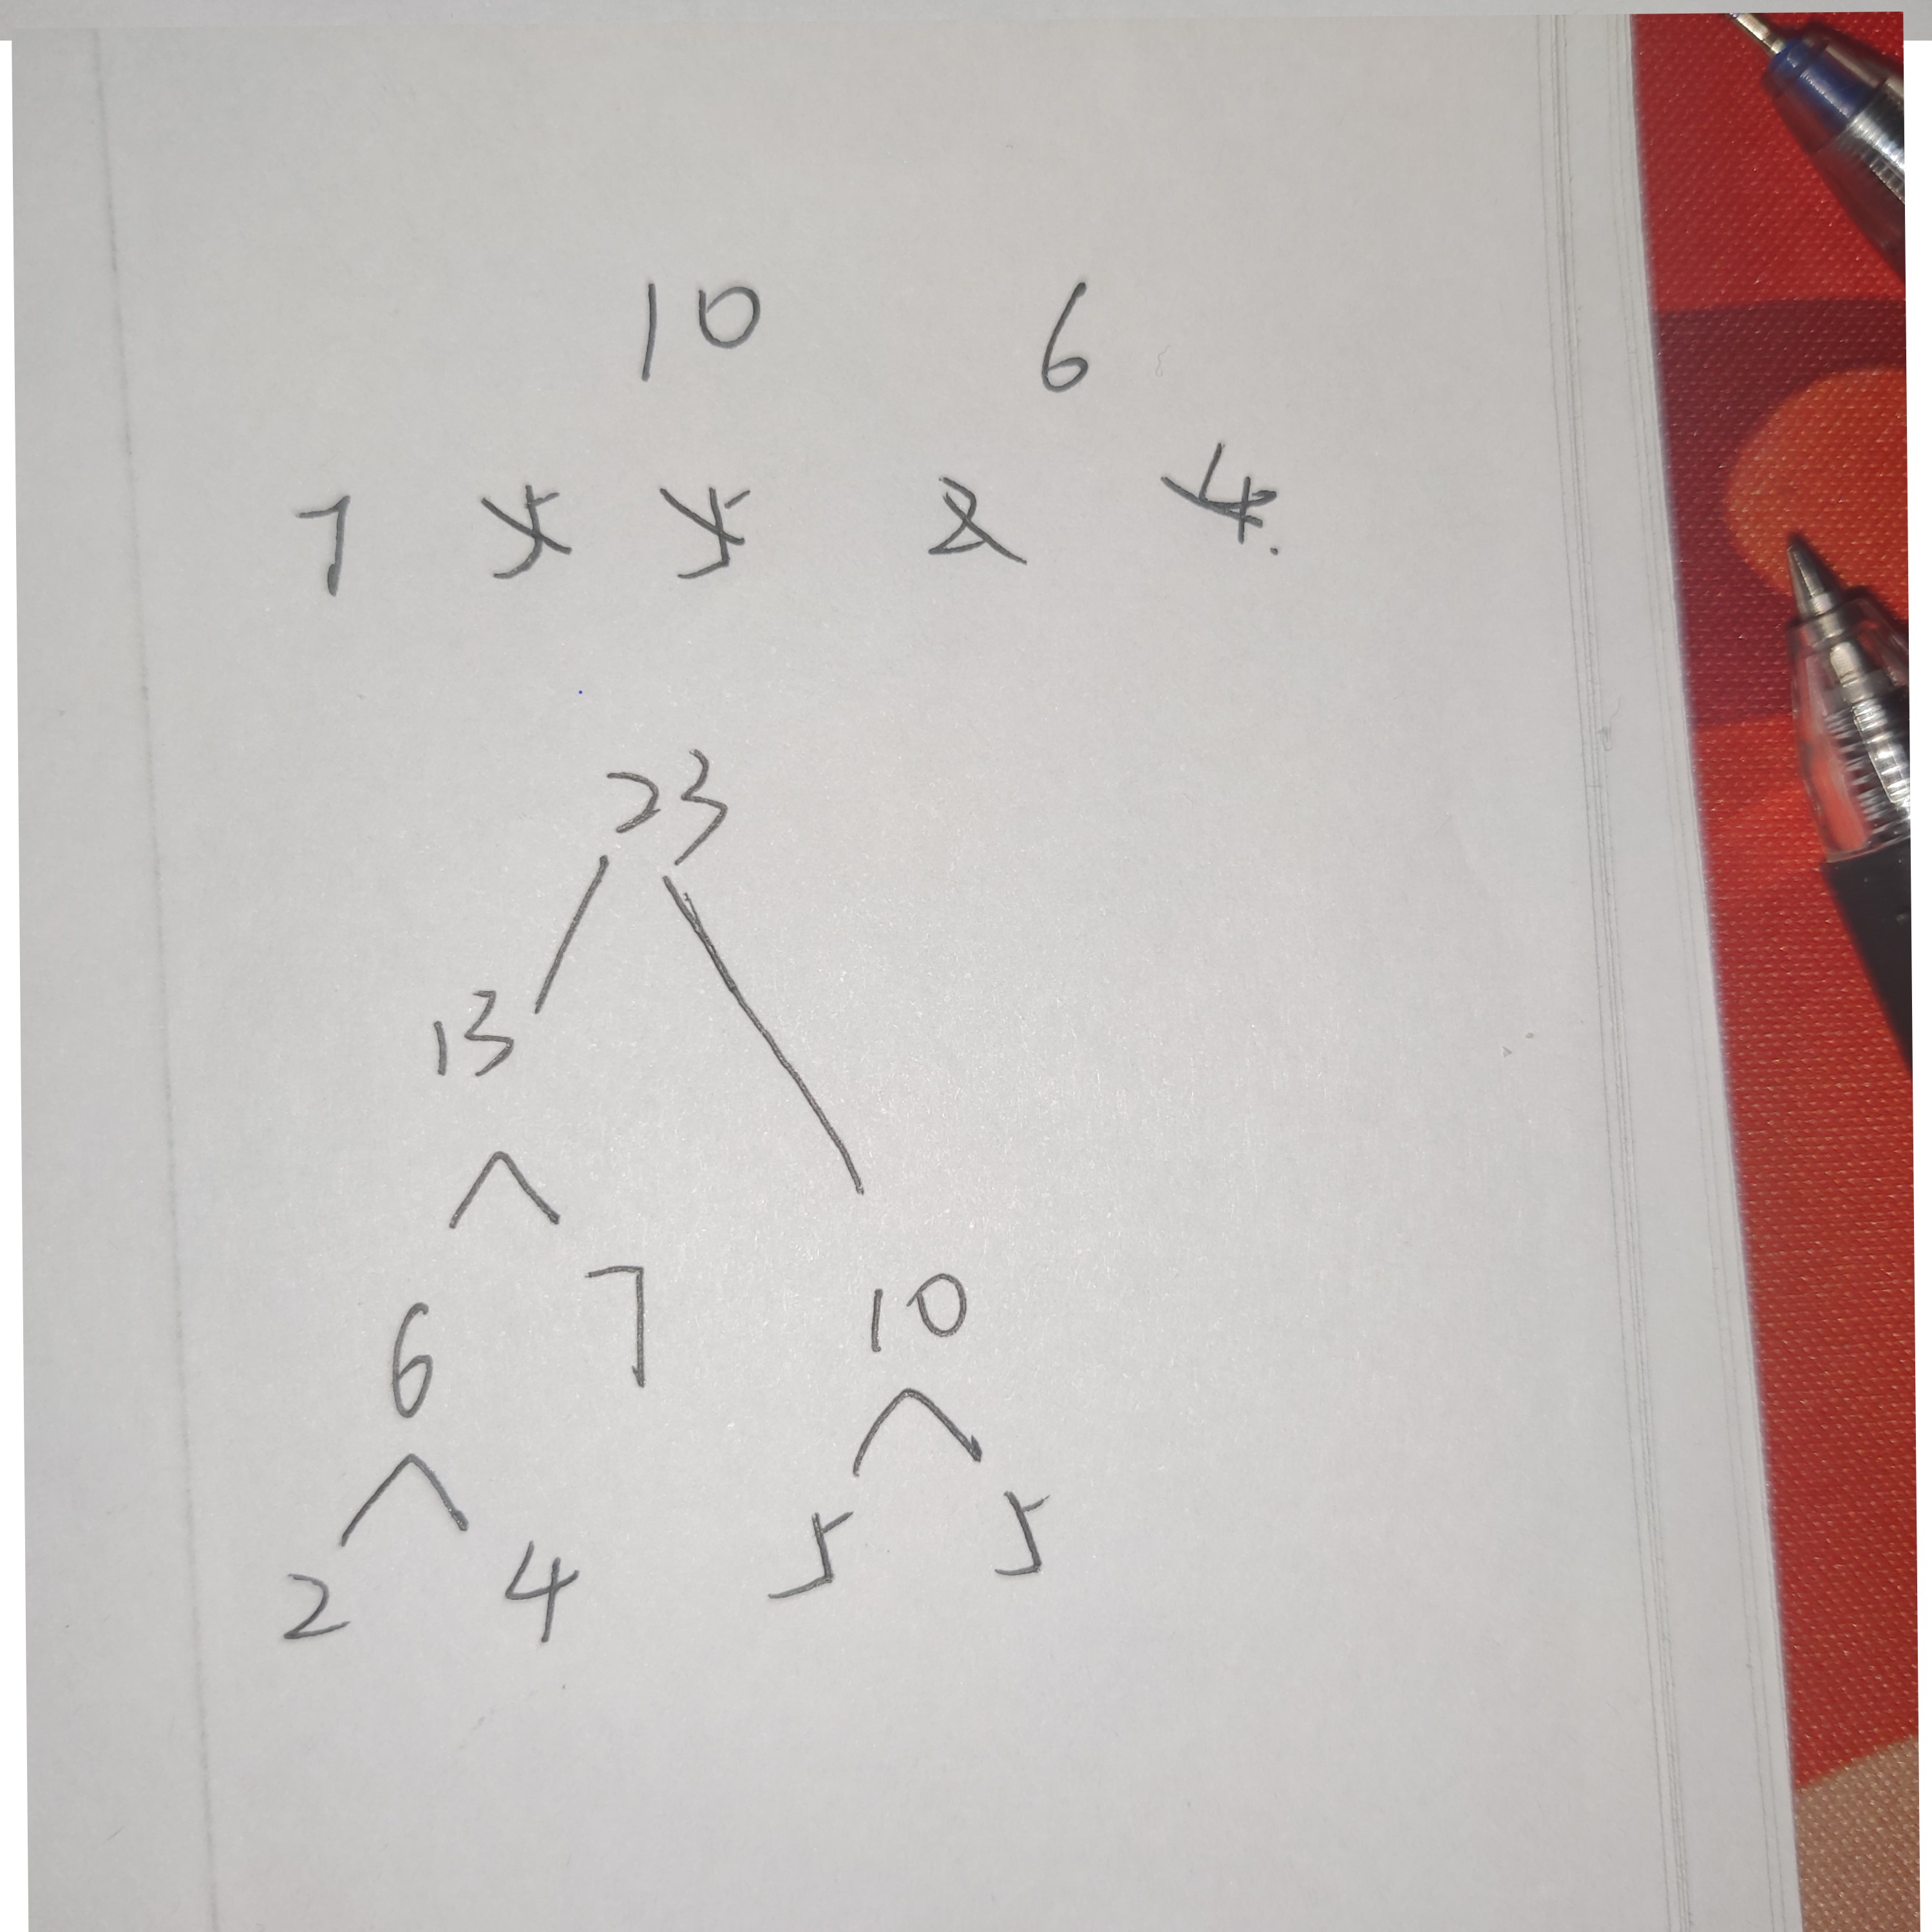 10 6
7 5 5 2 4.
23
13
6 7 10
2 4 5 5